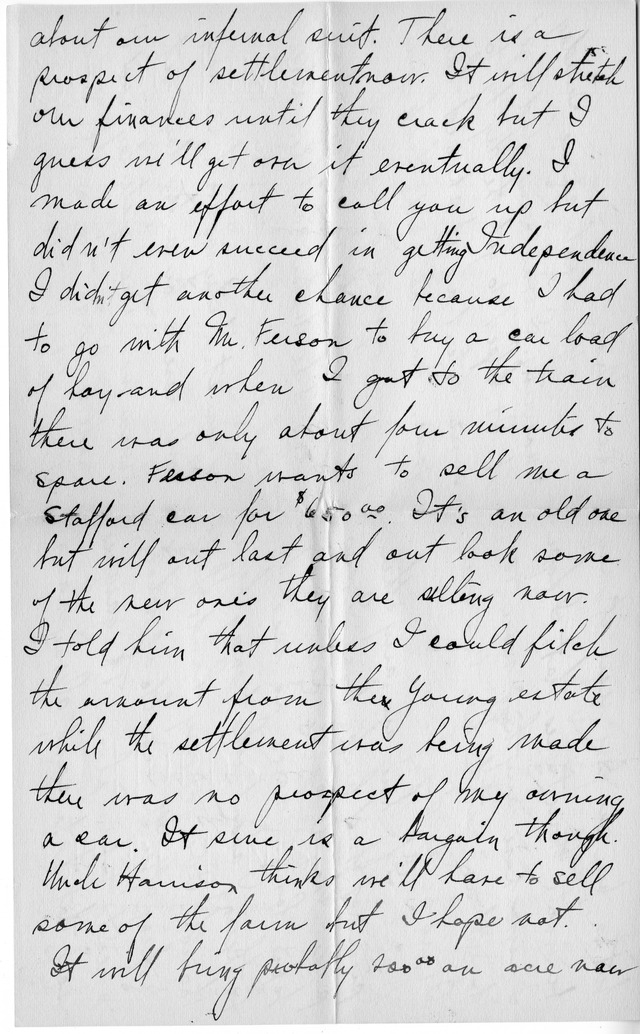 about our infernal suit. There is a
prospect of settlement now. It will stretch
our finances until they crack but I
guess we'll get over it eventually. I
made an effort to call you up but
didn't even succeed in getting Independence
I didn't get another chance because I had
to go with Mr. Ferson to buy a car load
of hay and when I got to the train
there was only about four minutes to
spare. Ferson wants to sell me a
Stafford car for $650.00. It's an old one
but will out last and out look some
of the new ones they are selling now.
I told him that unless I could filch
the amount from the Young estate
while the settlement was being made
there was no prospect of my owning
a car. It sure is a bargain though.
Uncle Harrison thinks we'll have to sell
some of the farm but I hope not.
It will bring probably 200.00 an acre now